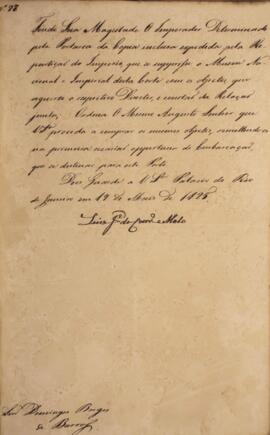 Nº 27
Tendo Sua Magestade O Imperador Determinado
pela Portaria da Copia incluza expedida pela Re-
partiçaõ do Imperio, que se suppra o Museu Na-
cional e Imperial desta Corte com os objectos, que
aqueria o respectivo Director, e constaõ da Relaçaõ
junta; Ordena O Mesmo Augusto Senhor que
VSª proceda a comprar os mesmos objectos, remettendo-os
na primeira occaziaõ opportuna de Embarcaçaõ,
que se destinar para este Porto.
Deos Guarde a VSª Palacio do Rio
de Janeiro em 12 de de 1825
Luiz Jº de Carvº e Mello
Snr Domingos Borges
de Barros